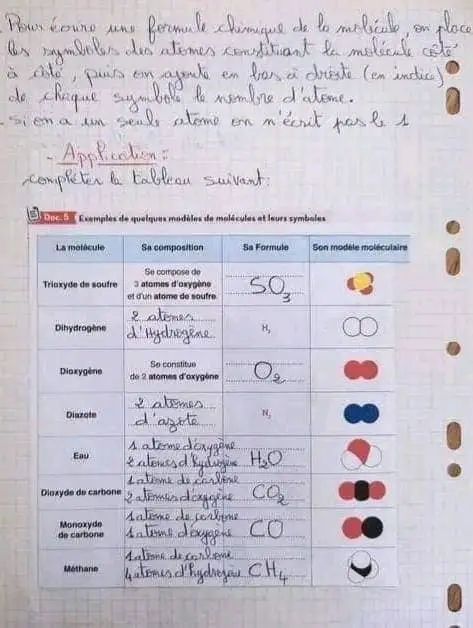 Pour écrire une formule chimique de la molécule, on place
les symboles des atomes constituant la molécule côté
à côté, puis on ajoute en bas à droite (en indice)
de chaque symbole le nombre d'atome.
- si on a un seule atome on n'écrit pas le 1
- Application :
compléter le tableau suivant:
Doc. 5 Exemples de quelques modèles de molécules et leurs symboles
La molécule Sa composition Sa Formule Son modèle moléculaire
Se compose de
Trioxyde de soufre 3 atomes d'oxygène SO₃
et d'un atome de soufre
2 atomes
Dihydrogène d'Hydrogène H₂
Se constitue
Dioxygène de 2 atomes d'oxygène O₂
2 atomes
Diazote d'azote N₂
1 atome d'oxygène
Eau 2 atomes d'hydrogène H₂O
1 atome de carbone
Dioxyde de carbone 2 atomes d'oxygène CO₂
1 atome de carbone
Monoxyde de carbone 1 atome d'oxygène CO
1 atome de carbone
Méthane 4 atomes d'hydrogène CH₄